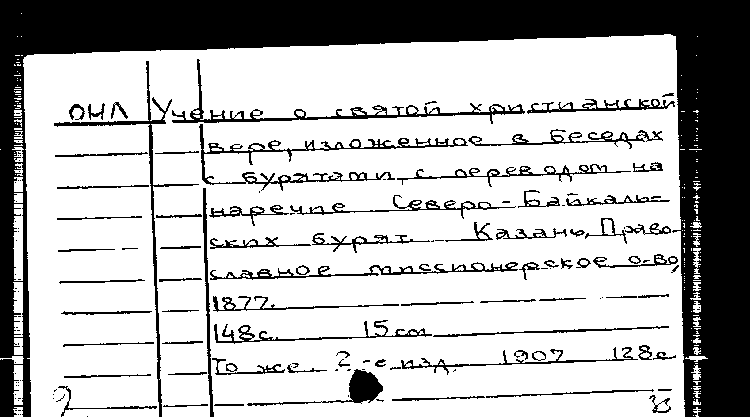 ОНЛ Учение о святой христианской
вере, изложенное в беседах
с бурятами, с переводом на
наречие Северо-Байкаль-
ских бурят. Казань, Право-
славное миссионерское о-во,
1877.
148с. 15см
То же. 2-е изд. 1907 128с